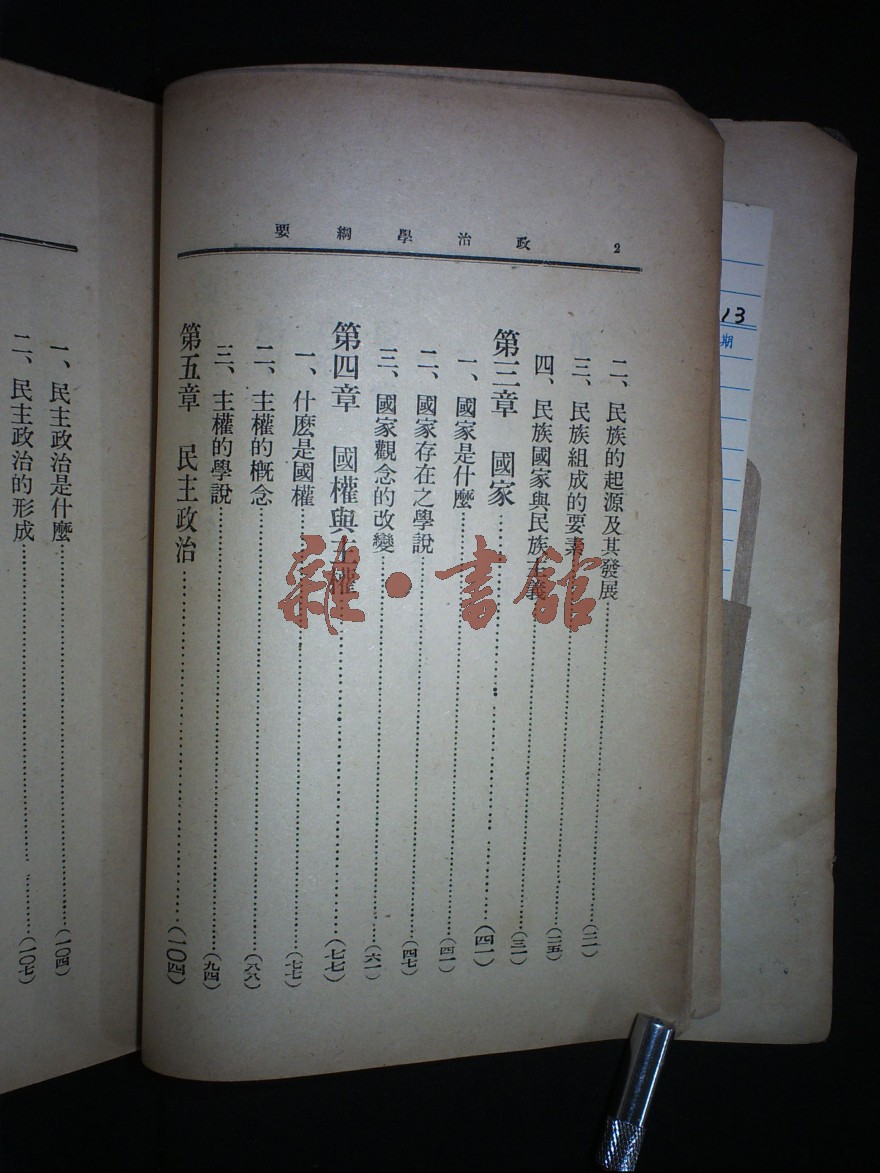 政治學綱要 2
二、民族的起源及其發展……(二一)
三、民族組成的要素……(二五)
四、民族國家與民族主義……(三一)
第三章 國家……(四一)
一、國家是什麼……(四一)
二、國家存在之學說……(四七)
三、國家觀念的改變……(六一)
第四章 國權與主權……(七七)
一、什麼是國權……(七七)
二、主權的概念……(八八)
三、主權的學說……(九四)
第五章 民主政治……(一〇四)
一、民主政治是什麼……(一〇四)
二、民主政治的形成……(一〇七)
13
期
雜·書館